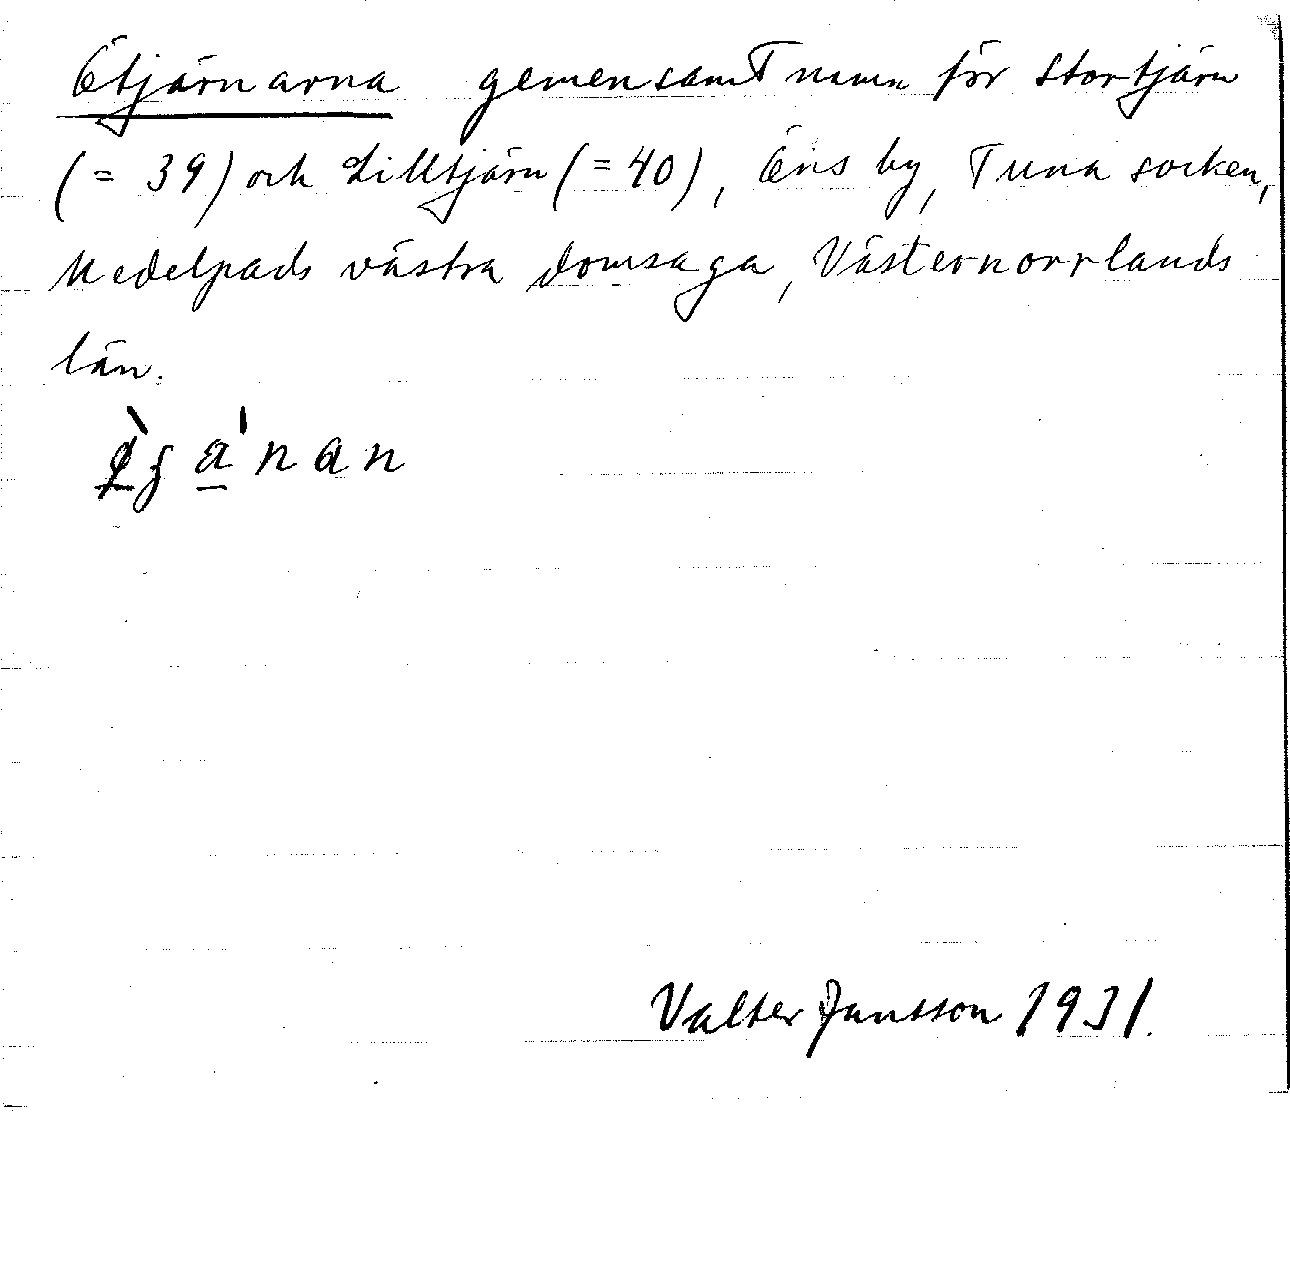 Ötjärnarna gemensamt namn för Stortjärn
(= 39) och Lilltjärn (= 40), Öns by, Tuna socken,
Medelpads västra domsaga, Västernorrlands
län.
Valter Jansson 1931.